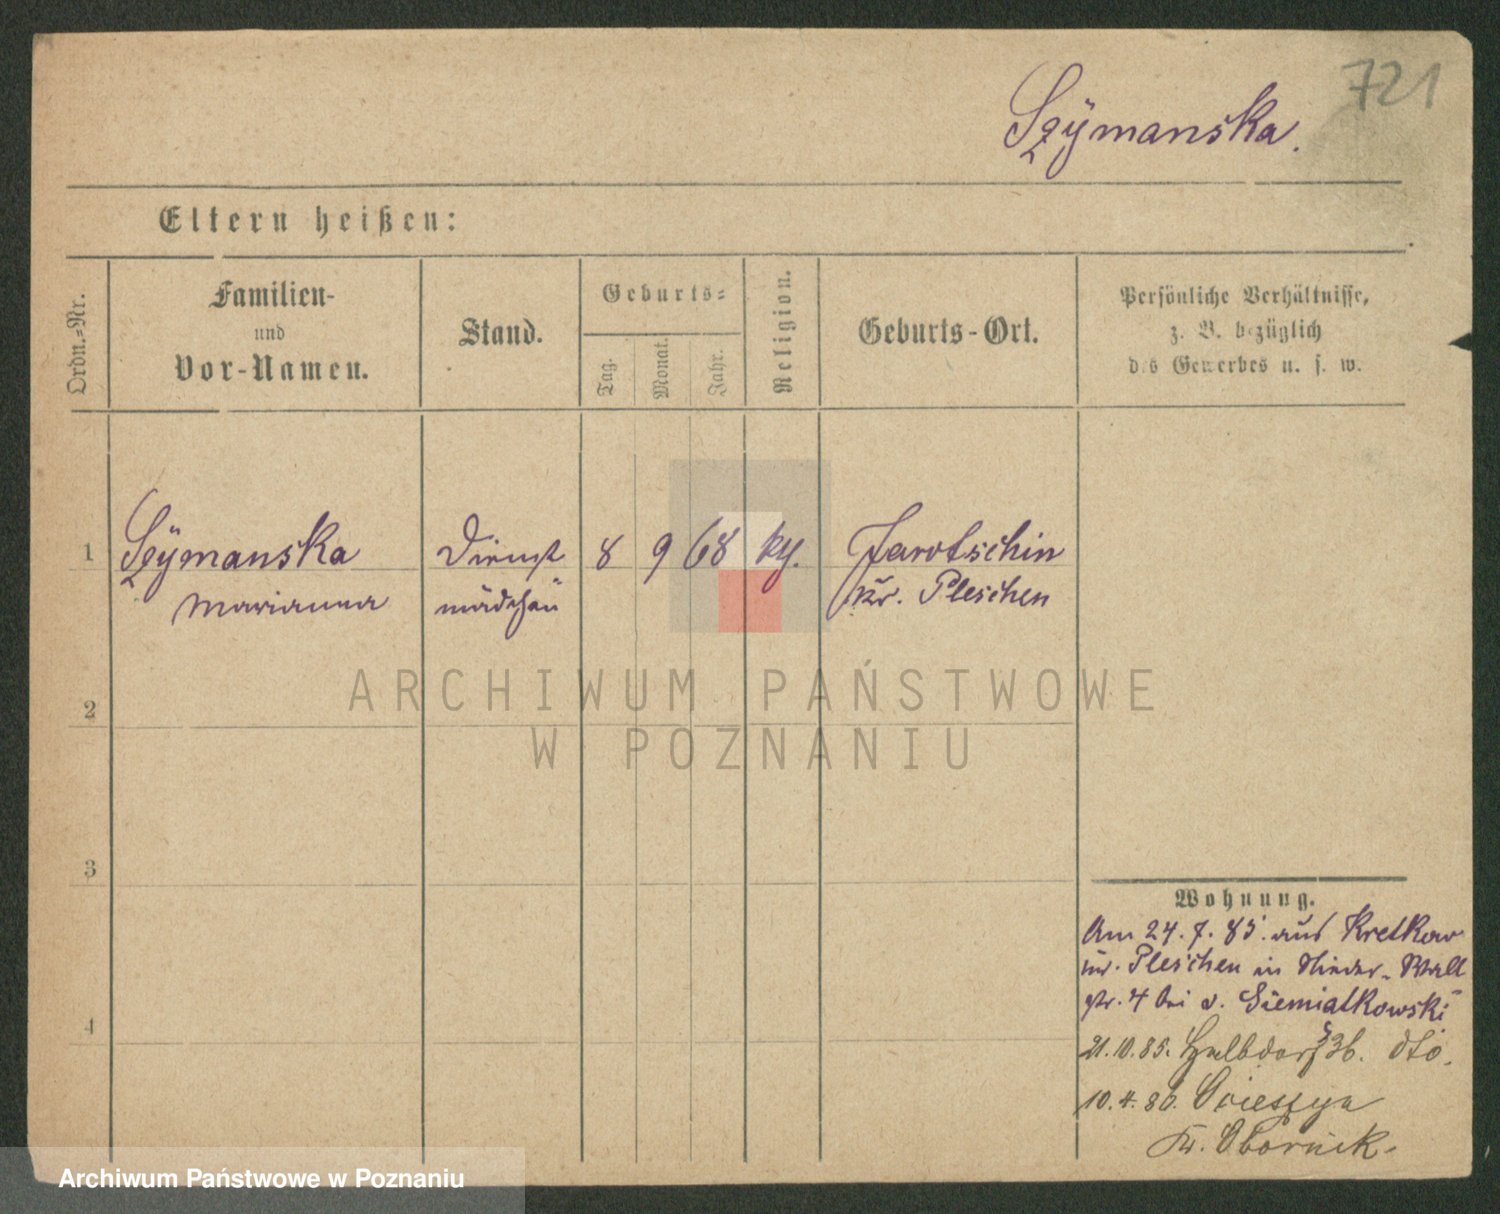 721
Szÿmanska.
Eltern heißen:
Ordn.-Nr.
Familien-
und
Vor-Namen.
Stand.
Geburts-
Tag.
Monat.
Jahr.
Religion.
Geburts-Ort.
Persönliche Verhältnisse,
z. B. bezüglich
des Gewerbes u. s. w.
1 Szÿmanska Dienst 8 9 68 kg. Jarotschin
Marianna mädchen Kr. Pleschen
2
3
4
Wohnung.
Am 24. 7. 85. aus Kretkow
Kr. Pleschen in Nieder-Wall
str. 4 bei v. Siemiatkowski
21.10.85. Halbdorfs 36. dto.
10.4.86.
Kr. Obornik.
ARCHIWUM PAŃSTWOWE
W POZNANIU
Archiwum Państwowe w Poznaniu